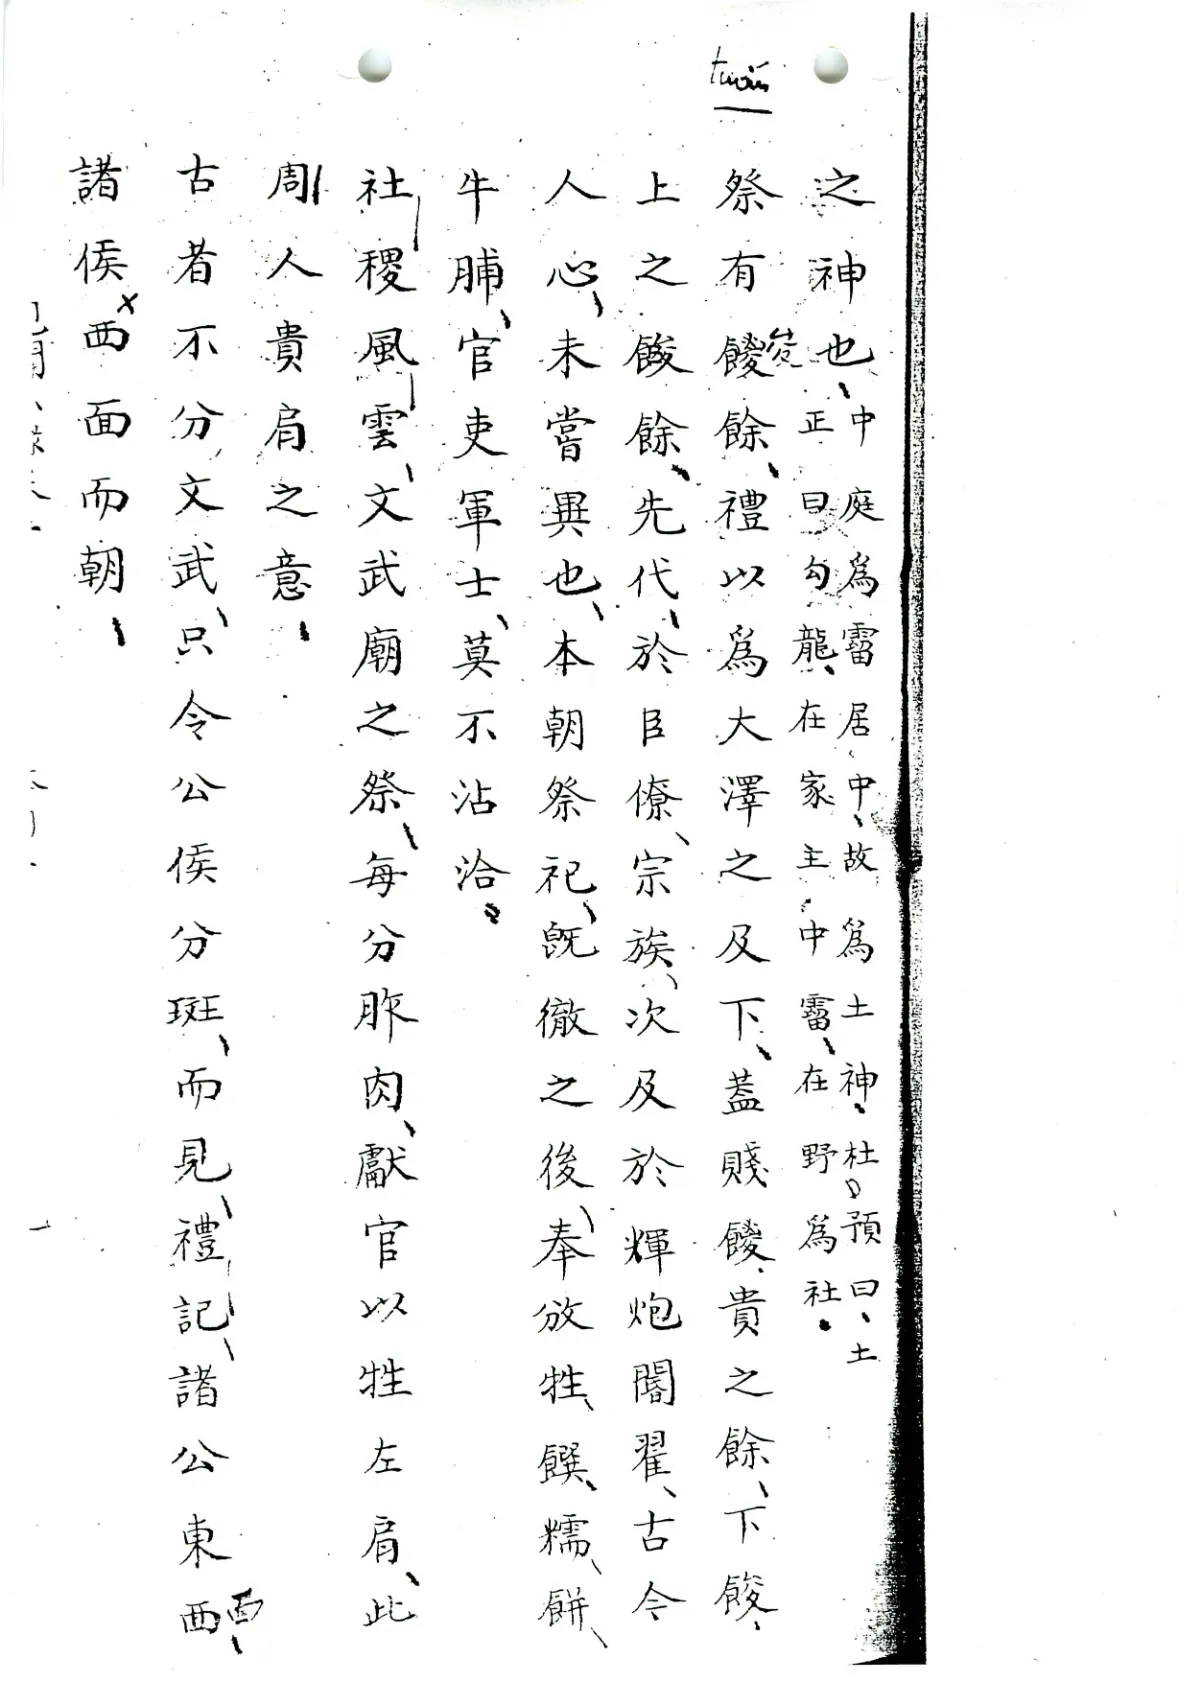 tuấn
之神也、中庭爲霤居中、故爲土神。杜預曰、土
正曰勾龍、在家主中霤、在野爲社。
祭有餕餘、禮以爲大澤之及下、蓋賤餕貴之餘、下餕
上之餕餘、先代、於臣僚、宗族、次及於輝炮閽翟、古今
人心、未嘗異也、本朝祭祀、旣徹之後、奉放牲、饌、糯、餅、
牛脯、官吏軍士、莫不沾洽。
社稷風雲、文武廟之祭、每分胙肉、獻官以牲左肩、此
周人貴肩之意、
古者不分文武、只令公侯分班、而見、禮記、諸公東西面、
諸侯西面而朝、